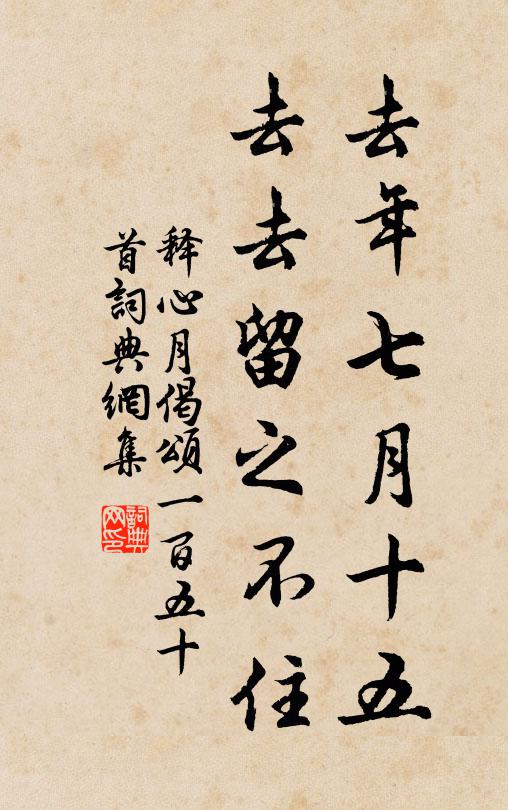 去年七月十五
去去留之不住
释心月偈頌一百五十
首詞典網集
詞典网印